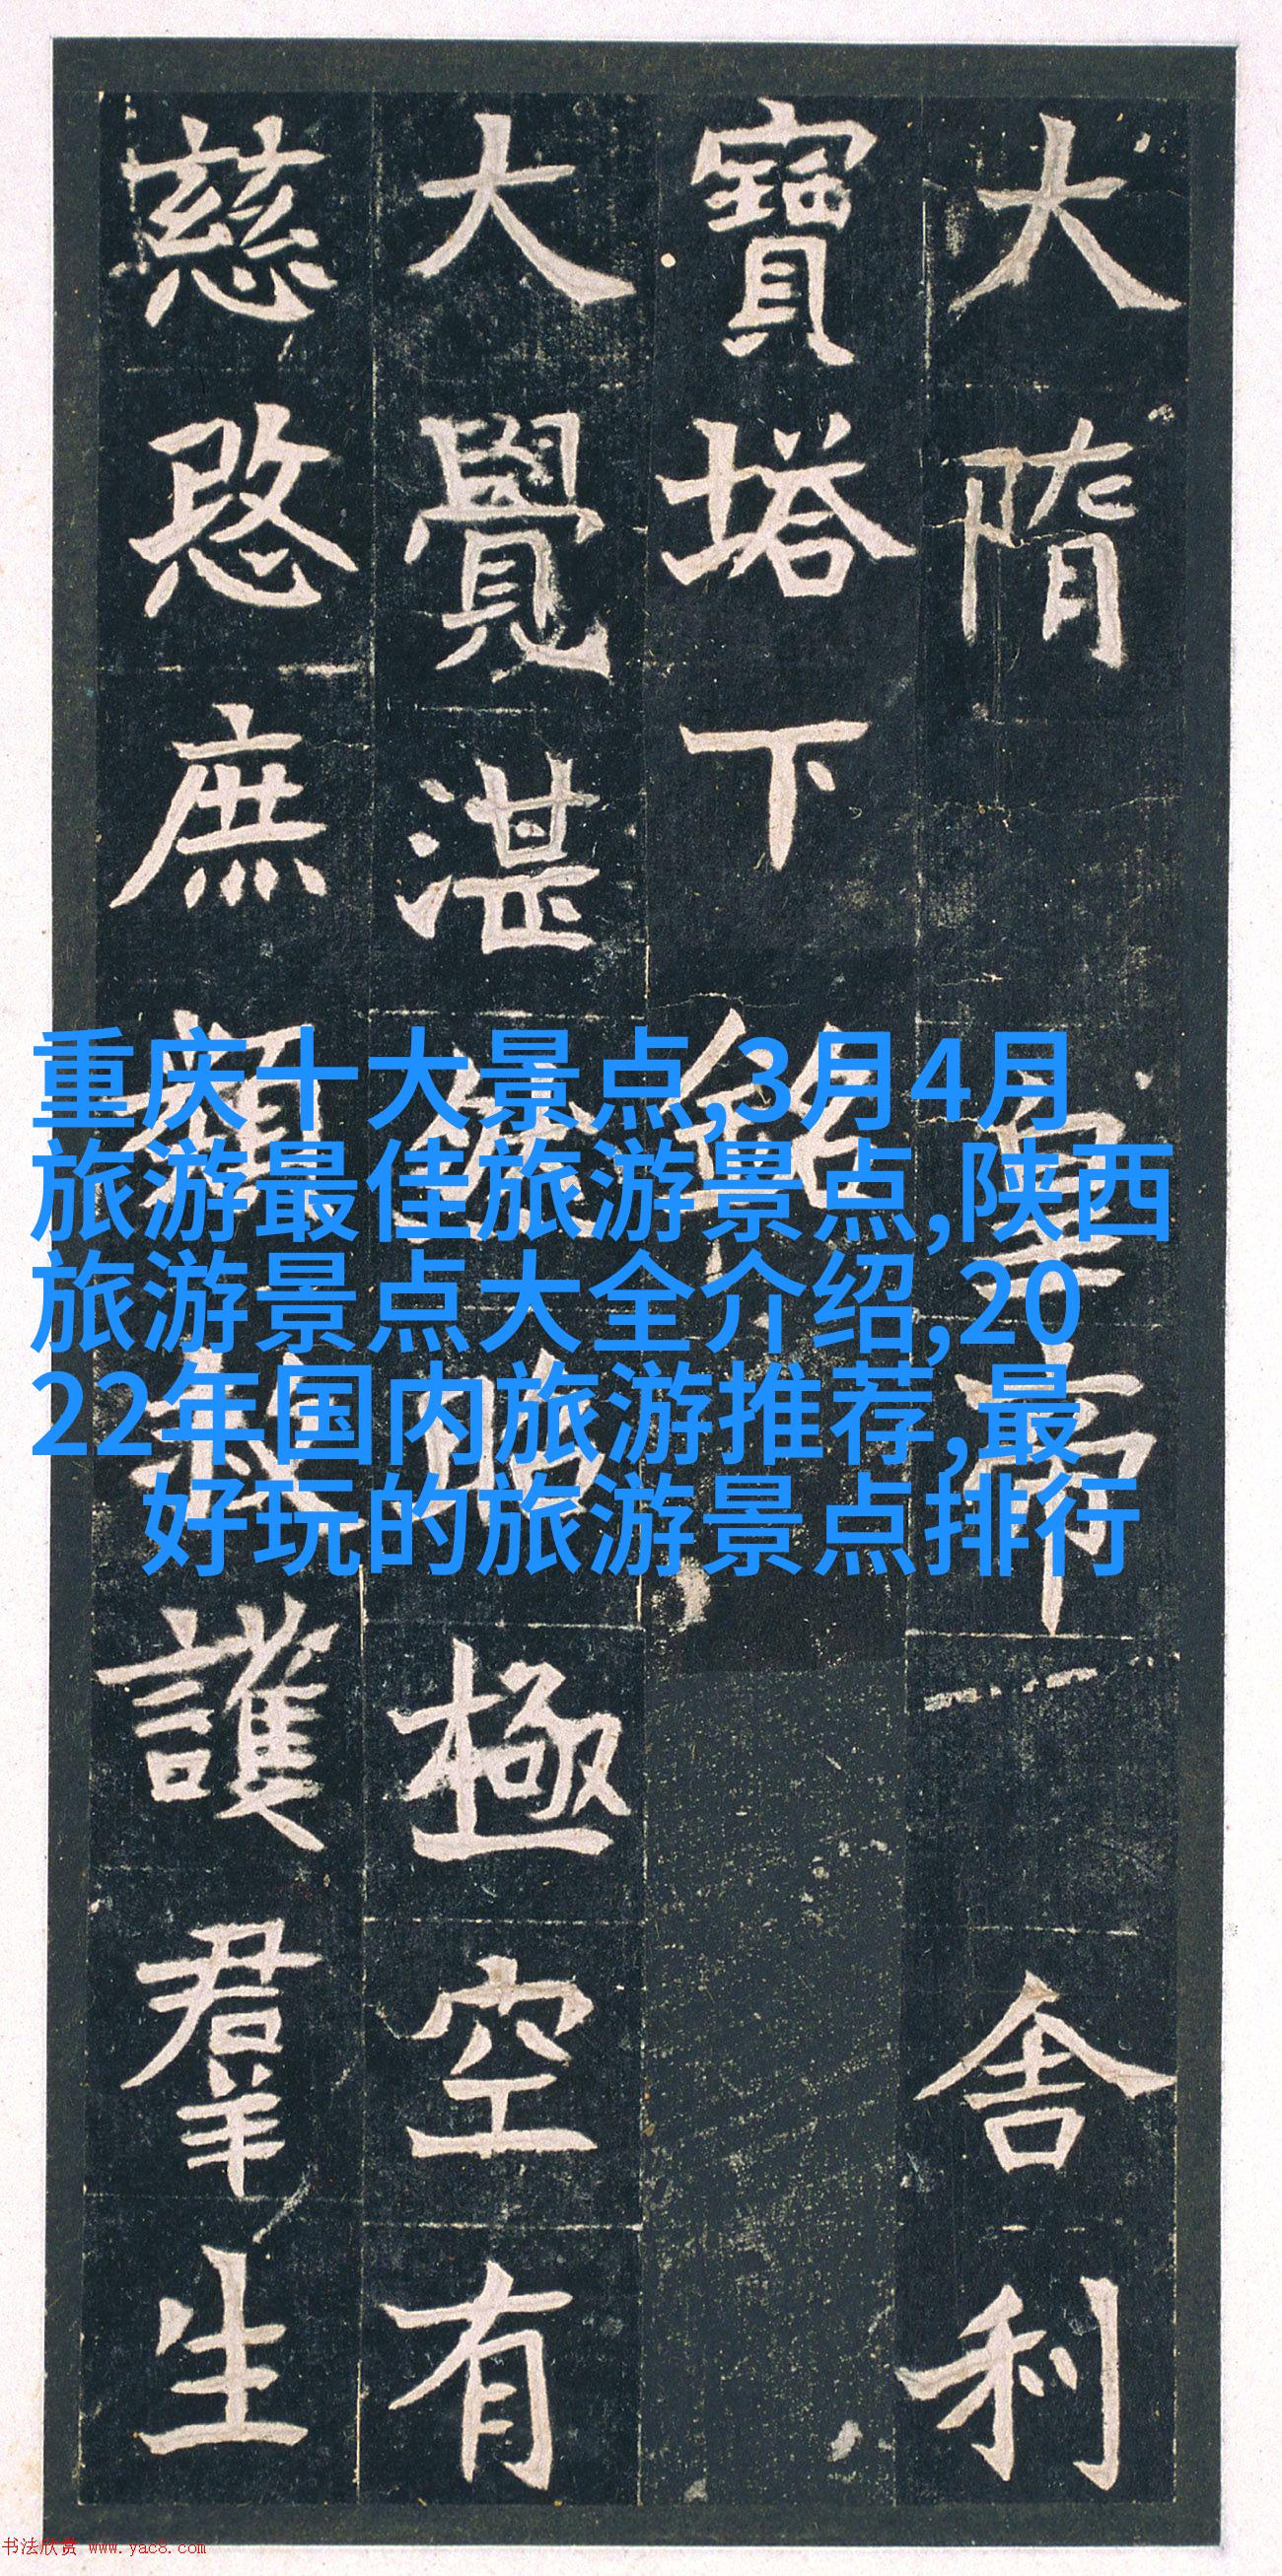 大隋皇帝舍利
寶塔下銘
大覺湛極空有
慈愍庶類救護羣生
重庆十大景点,3月4月
旅游最佳旅游景点,陕西
旅游景点大全介绍,20
22年国内旅游推荐,最
好玩的旅游景点排行
书法欣赏 www.yac8.com